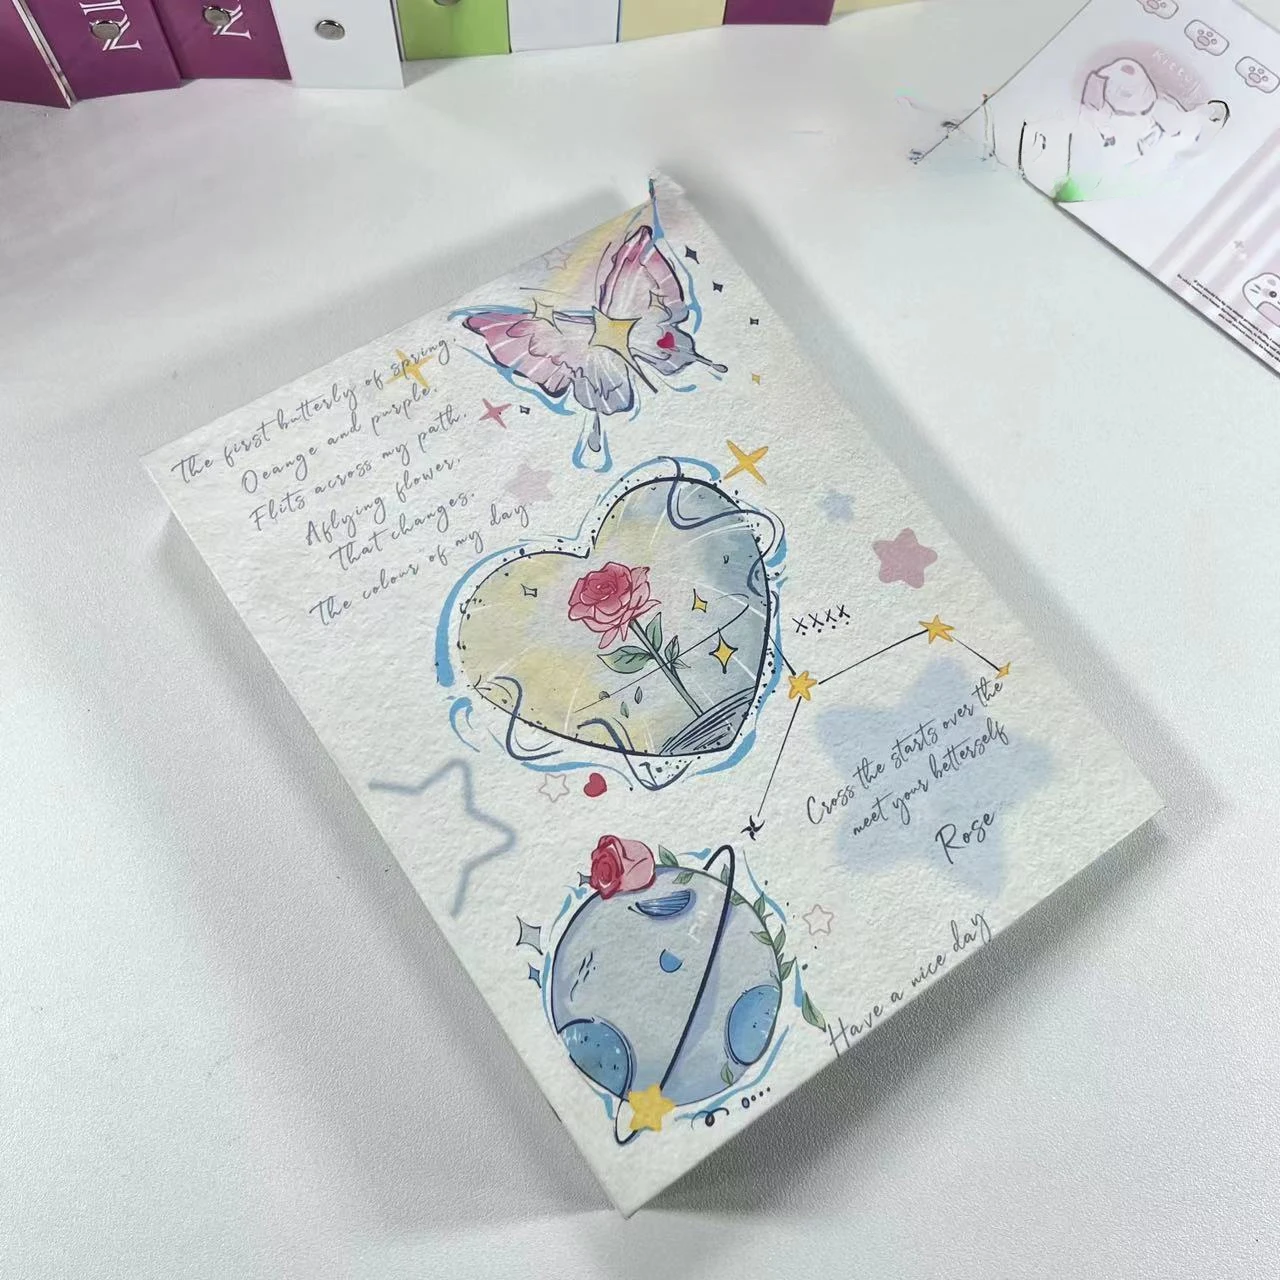 The first butterly of spring.
Oeange and purple.
Flits across my path.
Aflying flower.
That changes.
The colour of my day
xxxx
Cross the starts over the
meet your betterself
Rose
Have a nice day
Kitty